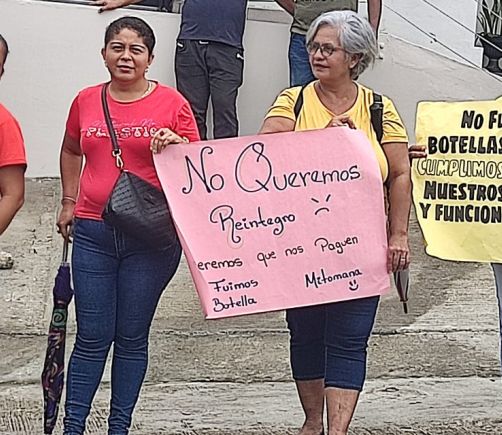 No Queremos
Reintegro :(
eremos que nos Paguen
Fuimos Mitomana
Botella :)
No FU
BOTELLAS
CUMPLIMOS
NUESTROS
Y FUNCION